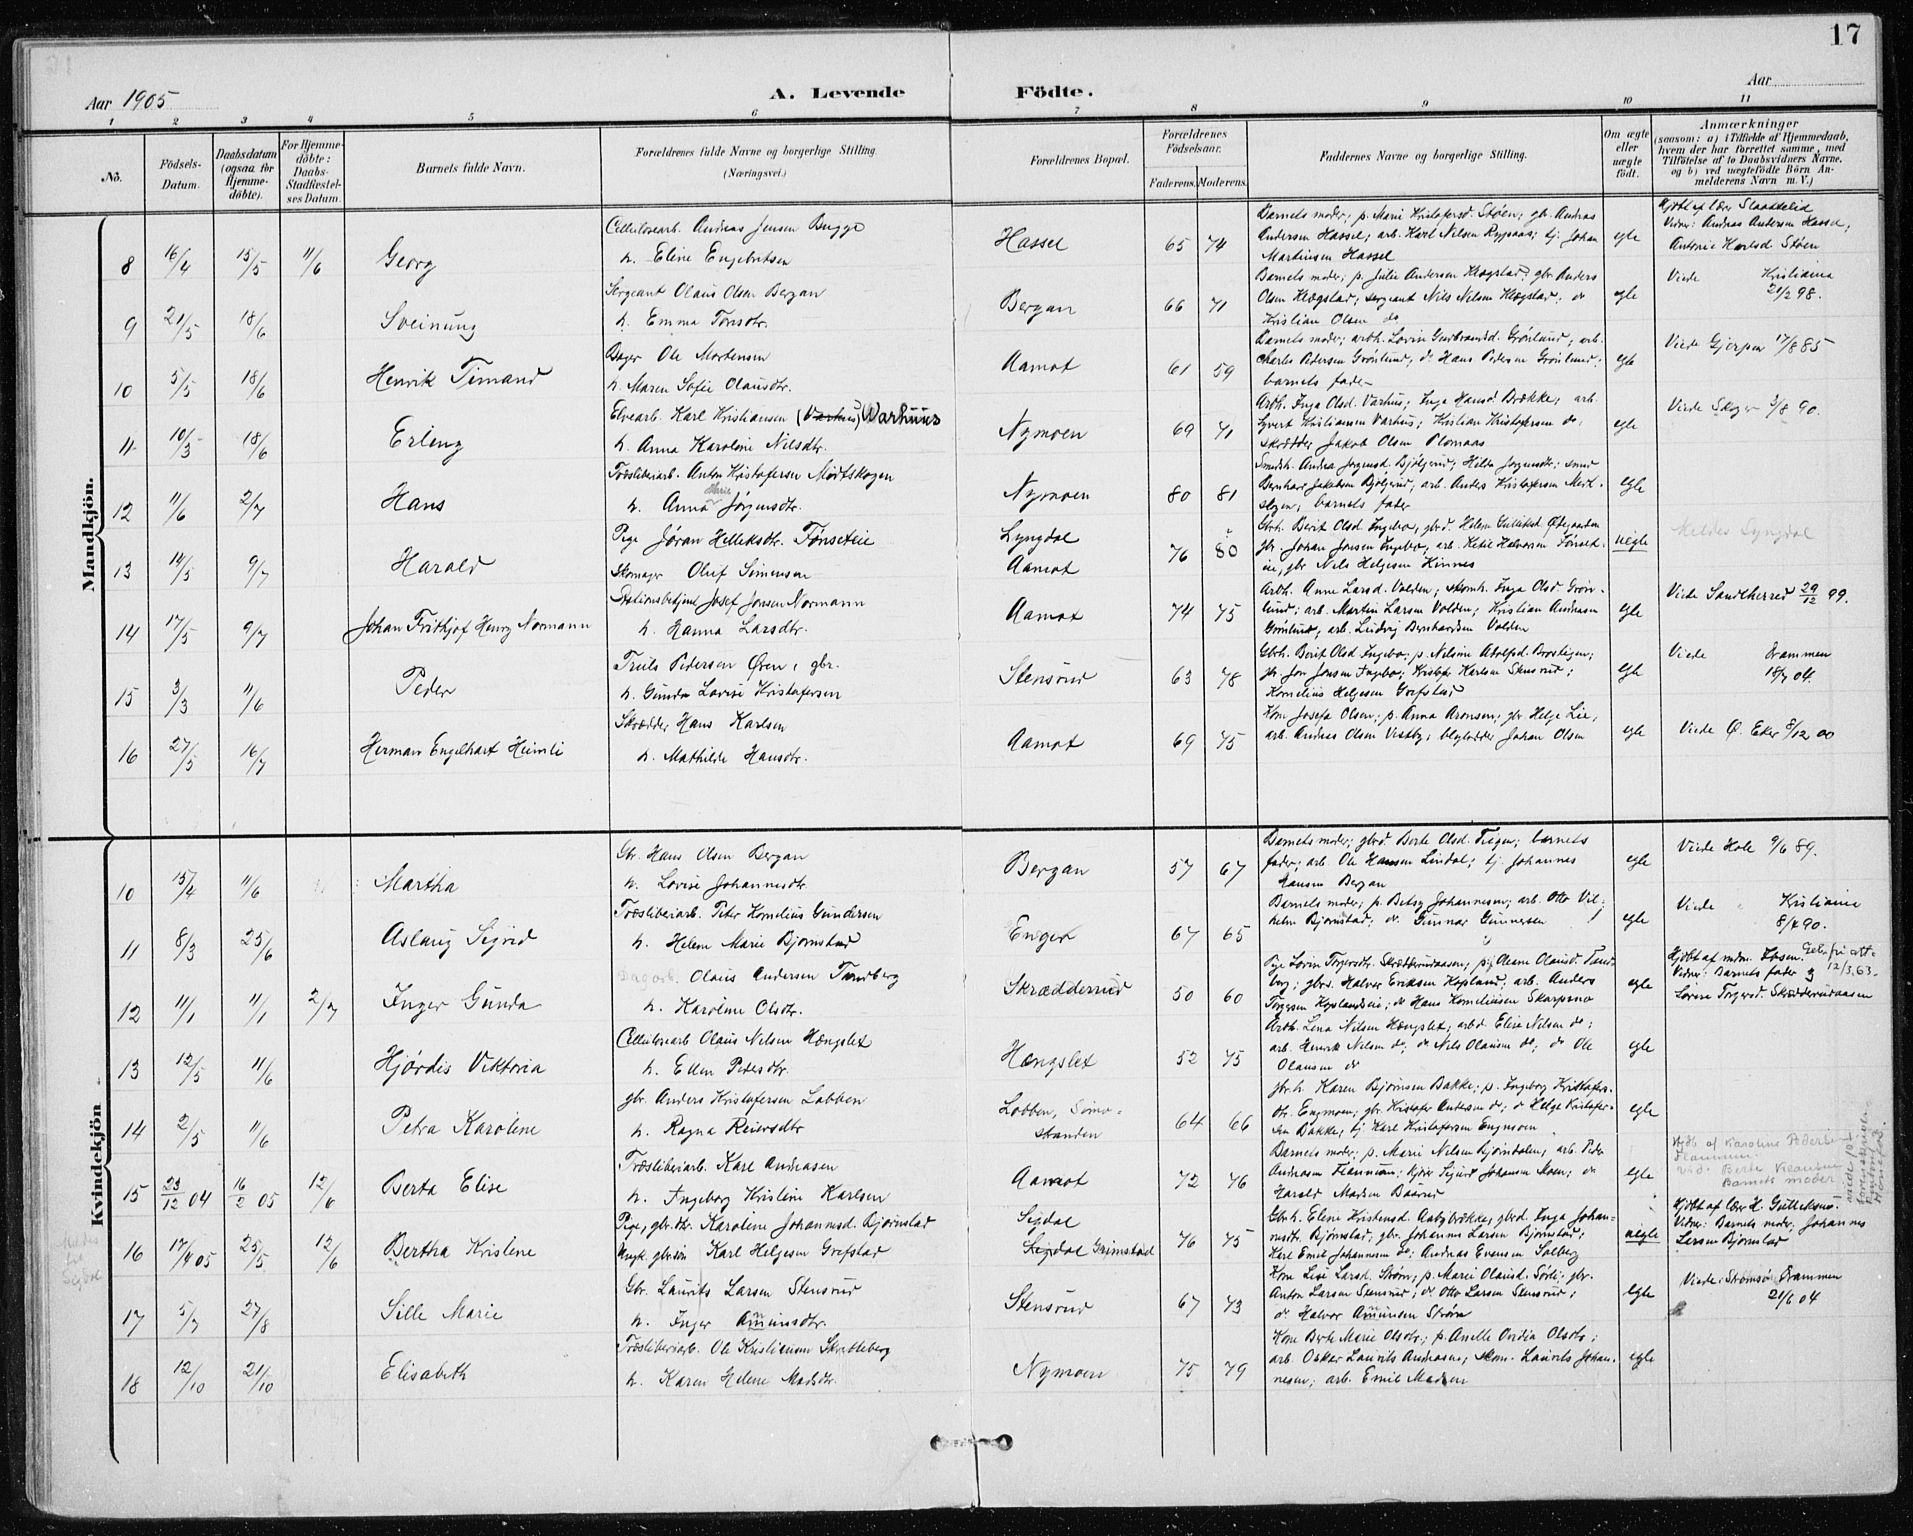 17
Aar 1905
A. Levende Födte.
Aar
1 2 3 4 5 6 7 8 9 10 11
No.
Födsels-Datum.
Daabsdatum (ogsaa for Hjemmedöbte).
For Hjemmedöbte: Daabs-Stadfæstelses Datum.
Barnets fulde Navn.
Forældrenes fulde Navne og borgerlige Stilling. (Næringsvei.)
Forældrenes Bopæl.
Forældrenes Födselsaar.
Faderens. Moderens.
Faddernes Navne og borgerlige Stilling.
Om ægte eller uægte födt.
Anmærkninger (saasom: a) i Tilfælde af Hjemmedaab, hvem der har forrettet samme, med Tilföielse af to Daabsvidners Navne, og b) ved uægtefödte Börn Anmelderens Navn m. V.)
Mandkjön.
8 16/4 15/5 11/6 Georg
Cellulosearb. Andreas Jensen Bugge
h. Eline Engebretsen
Hassel 65 74
Barnets moder; p. Marie Kristofersd. Støen; gbr. Andreas
Andersen Hassel; arb. Karl Nilsen Rypaas; tj. Johan
Martinsen Hassel
egte
Hjdbt af lærer Slaattelid
Vidner: Andreas Andersen Hassel,
Antonie Karlsd Støen
9 21/5 18/6 Sveinung
Sergeant Olaus Olsen Bergan
h. Emma Tonsdtr.
Bergan 66 71
Barnets moder; p. Julie Andersen Hægstad; gbr. Anders
Olsen Hægstad; sergeant Nils Nilsen Hægstad; do
Kristian Olsen do
egte
Viede Kristiania
21/2 98.
10 5/5 18/6 Henrik Timand
Bager Ole Mortensen
h. Maren Sofie Olausdtr.
Aamot 61 59
Barnets moder; arbh. Lovise Gudbrandsd. Grønlund; arb.
Charles Pedersen Grønlund; do Hans Pedersen Grønlund;
barnets fader
egte
Viede Gjerpen 17/8 85
11 10/3 18/6 Erling
Elvearb. Karl Kristiansen (Varhus) Warhuus
h. Anna Karoline Nilsdtr.
Nymoen 69 71
Arbh. Inga Olsd. Varhus; Inga Hansd Brække; arb.
Syvert Kristiansen Varhus; Kristian Kristofersen do;
skrædder Jakob Olsen Plomaas
egte
Viede Skoger 3/8 90.
12 11/6 2/7 Hans
Træsliberiarb. Anton Kristofersen Mørtskogen
h. Anna Marie Jørgensdtr.
Nymoen 80 81
Smedh. Andrea Jørgensd. Bjølgerud; Hilda Jørgensdtr; smed
Bernhard Jakobsen Bjølgerud, arb. Anders Kristofersen Mørt-
skogen; barnets fader
egte
13 14/5 9/7 Harald
Pige Jøran Helleksdtr. Tønseteie
Skomager Oluf Simensen
Lyngdal
Aamot 76 80
Gbrh. Berit Olsd. Ingebo, gbrd. Helene Gulliksd Ødegaarden
gbr. Johan Jonsen Ingebo, arb. Ketil Halvorsen Tønset-
eie, gbr Nils Helgesen Hinnes
uegte
Meldes Lyngdal
14 17/5 9/7 Johan Fritkjof Henry Normann
Stationsbetjent Josef Jonsen Normann
h. Hanna Larsdtr.
Aamot 74 75
Arbh. Anne Larsd. Volden; skomh. Inga Olsd. Grøn-
lund; arb. Martin Larsen Volden; Kristian Andreasen
Grønlund; arb. Ludvig Bernhardsen Volden
egte
Viede Sandeherred 29/12 99.
15 3/3 11/6 Peder
Truls Pedersen Øren, gbr.
h. Gunda Lovise Kristofersen
Stensrud 63 78
Gbrh. Berit Olsd Ingebo; p. Nelsine Adolfsd. Brostigen;
gbr. Jon Jonsen Ingebo; Kristofer Karlsen Stensrud;
Kornelius Helgesen Grefstad
egte
Viede Drammen
18/7 04.
16 27/5 16/7 Herman Engelhart Heimli
Skrædder Hans Karlsen
h. Mathilde Hansdtr.
Aamot 69 75
Kone Josefa Olsen; p. Anna Aronsen; gbr. Helge Lie,
arb. Andreas Olsen Vestby; Johan Olsen
egte
Viede Ø. Eker 8/12 00
Kvindekjön
10 15/4 11/6 Martha
Gbr. Hans Olsen Bergan
h. Lovise Johannesdtr.
Bergan 57 67
Barnets moder; gbrd. Berte Olsd. Teigen; barnets
fader; arb Ole Hansen Lindal; tj. Johannes
Hansen Bergan
egte
Viede Hole 9/6 89.
11 8/3 25/6 Aslaug Sigrid
Træsliberiarb. Peter Kornelius Gundersen
h. Helene Marie Bjørnstad
Enger 67 65
Barnets moder; p. Betsy Johannesen; arb. Otto Vil-
helm Bjørnstad; do. Gunnar Gunnersen
egte
Viede Kristiania
8/4 90.
12 11/1 11/1 2/7 Inger Gunda
Dagarb. Olaus Andersen Tandberg
h. Karoline Olsdtr.
Skrædderrud 50 60
Pige Lovise Torgersdtr. Skrædderudaasen; pig Oleane Olausd. Tand-
berg; gbrd. Halvor Eriksen Hopland; arb. Anders
Torgersen Hoplandseie; do Hans Korneliusen Skarpsno
egte
Hjdbt af mdm. Fosen. Gebr.fri att.
12/3.63.
Vidner: Barnets fader og
Lovise Torgersd. Skrædderudaasen
13 12/5 11/6 Hjørdis Viktoria
Cellulosearb Olaus Nilsen Hængslet
h. Ellen Pedersdtr.
Hængslet 52 75
Arbh. Lena Nilsen Hængslet; arbd. Elise Nilsen do;
arb. Henrik Nilsen do; do Nils Olausen do; do Ole
Olausen do
egte
14 2/5 11/6 Petra Karoline
gbr. Anders Kristofersen Lobben
h. Ragna Reiersdtr
Lobben, Simo-
stranden 64 66
gbr.h. Karen Bjørnsen Bakke; p. Ingeborg Kristofers-
dtr. Engmoen; gbr. Kristofer Andersen do; do Helge Kristofer-
sen Bakke, tj Karl Kristofersen Engmoen
egte
15 23/12 04 16/2 05 12/6 Berta Elise
Træsliberiarb. Karl Andreasen
h. Ingeborg Kristine Karlsen
Aamot 72 76
Barnets moder; p. Marie Nilsen Bjørndalen; arb. Peder
Andreasen Flannum; kjører Sigurd Johansen Moen; do
Harald Madsen Baarud
egte
Hjdb. af Karoline Peders
Flannum.
Vid: Berte
Barnets moder
16 17/4 05 25/5 12/6 Bertha Kristine
Pige, gbr.dtr. Karoline Johannesd. Bjørnstad
Ungk. gbrsøn Karl Helgesen Grefstad
Sigdal
Sigdal Grimstad 76 75
Gbrh. Eline Kristensd. Aabybrække; gbrd. Inga Johan-
nesdtr. Bjørnstad, gbr. Johannes Larsen Bjørnstad;
Karl Emil Johannesen do; Andreas Evensen Solberg
uegte
Hjdbt af lærer H. Gulliksen.
Vidner: Barnets moder, Johannes
Larsen Bjørnstad
Sigdal
17 5/7 27/8 Sille Marie
Gbr. Laurits Larsen Stensrud
h. Inger Amunsdtr.
Stensrud 67 73
Kone Lise Larsd. Strøm; p. Marie Olausd. Sørli; gbr.
Anton Larsen Stensrud; do Otto Larsen Stensrud;
do Halvor Amunsen Strøm
egte
Viede: Strømsø Drammen
21/6 04
18 12/10 21/10 Elisabeth
Træsliberiarb. Ole Kristiansen Skretteberg
h. Karen Helene Madsdtr.
Nymoen 75 79
Kone Berte Marie Olsdtr; p. Anette Ovidia Olsdtr;
arb. Oskar Laurits Andreasen; skom. Laurits Johan-
nesen; arb. Emil Madsen
egte